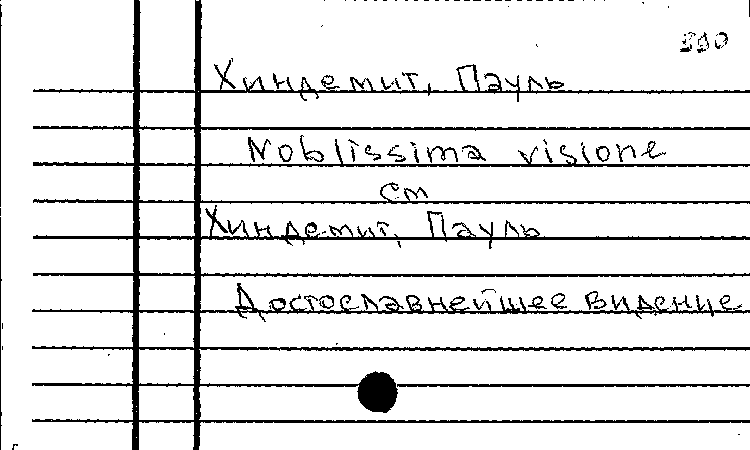 Хиндемит, Пауль
Noblissima visione
см
Хиндемит, Пауль
Достославнейшее видение